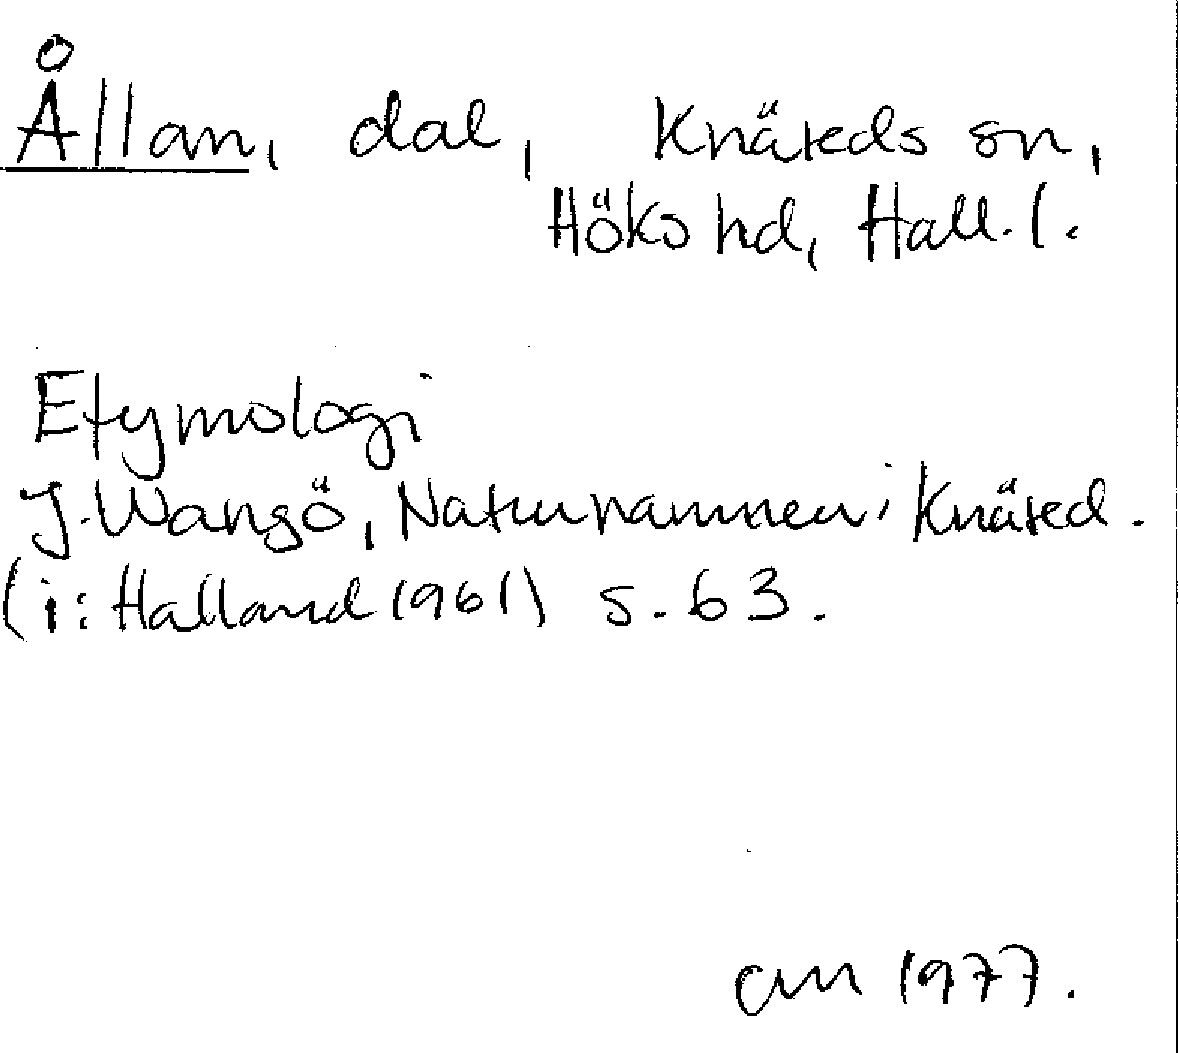 Ållan, dal, Knäreds sn,
Höks hd, Hall. l.
Etymologi
J. Wangö, Naturnamnen i Knäred.
(i: Halland 1961) s. 63.
am 1977.